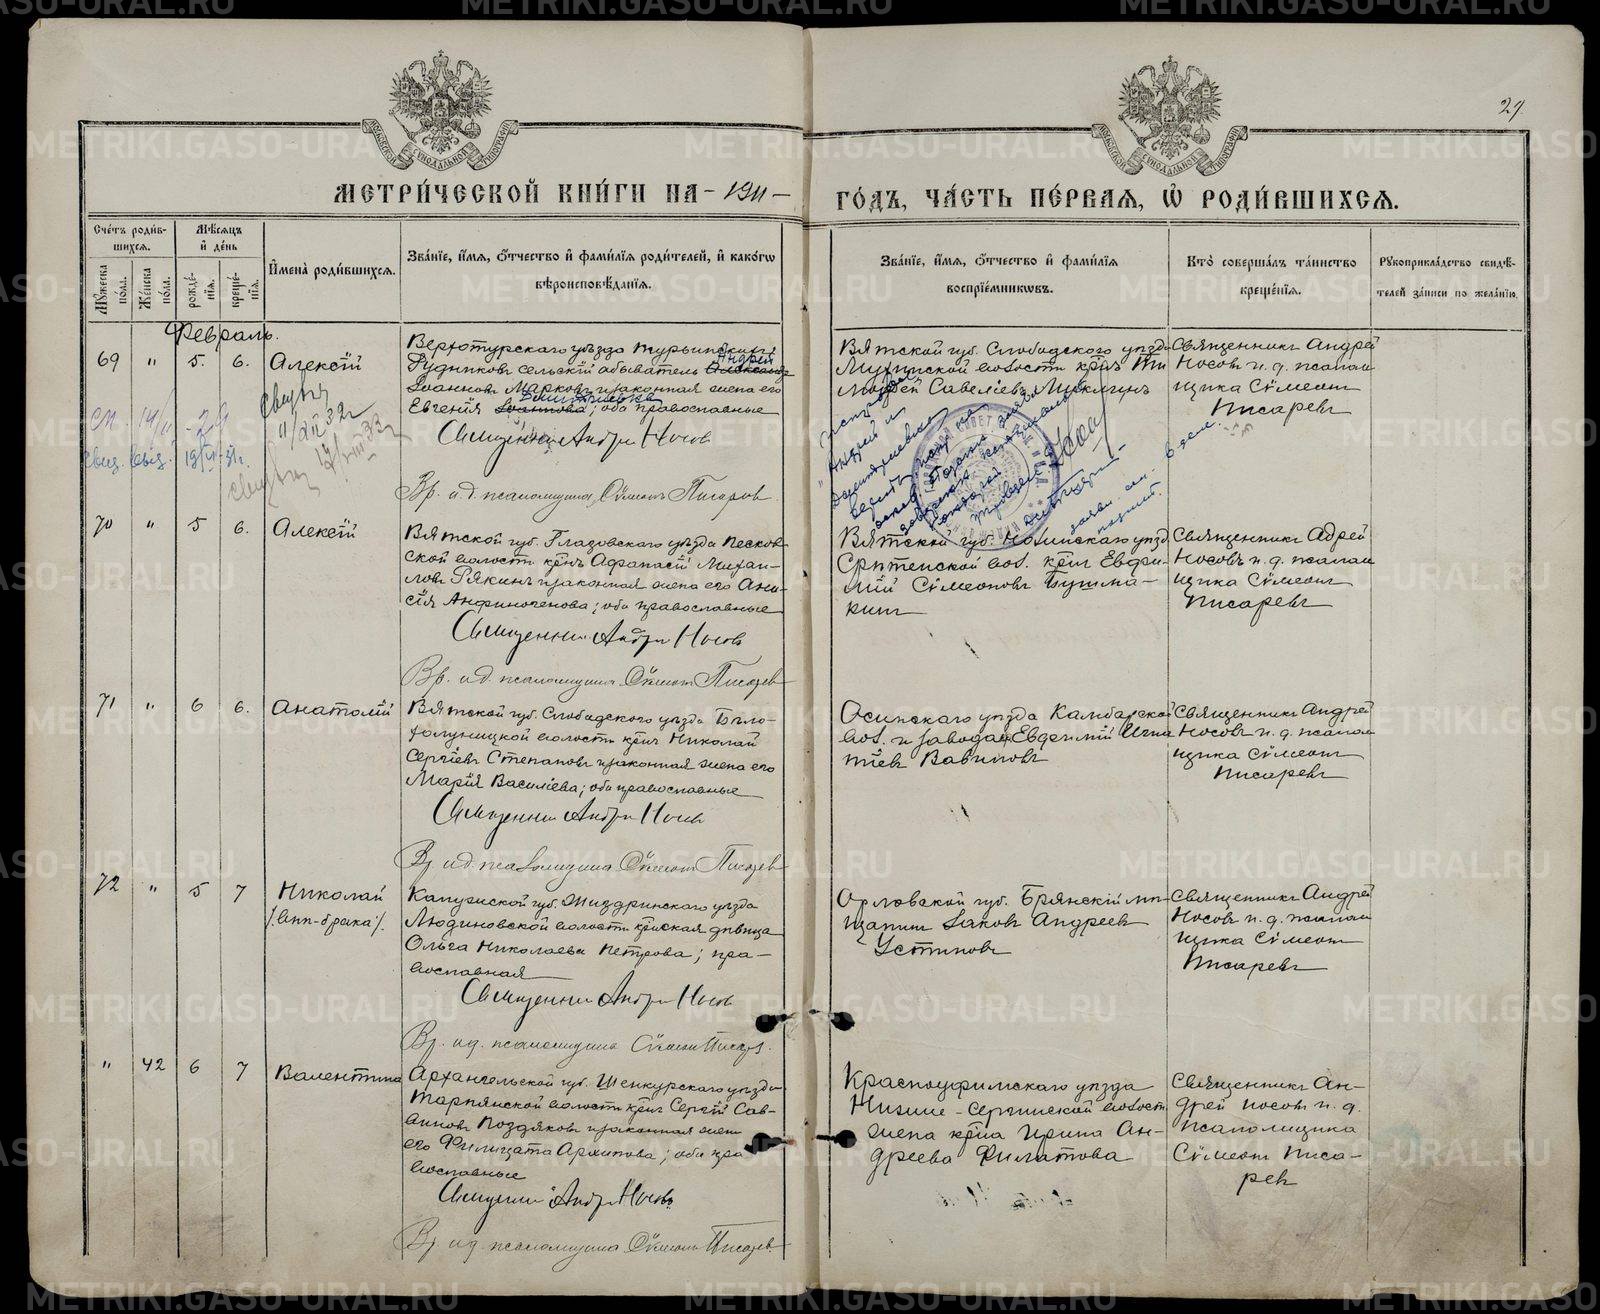 29
МЕТРИ́ЧЕСКОЙ КНИ́ГИ НА - 1911 -
ГО́ДЪ, ЧА́СТЬ ПЕ́РВАѦ, Ѡ҆ РОДИ́ВШИХСѦ.
Сче́тъ роди́в-
шихсѧ.
Мѣ́сѧцъ
и҆ де́нь
Мꙋ́жеска по́ла.
Же́нска по́ла.
рожде́-
нїѧ.
креще́-
нїѧ.
И҆мена̀ роди́вшихсѧ.
Зва́нїе, и҆́мѧ, ѻ҆́тчество и҆ фами́лїѧ роди́телей, и҆ како́гѡ
вѣроисповѣ́данїѧ.
Зва́нїе, и҆́мѧ, ѻ҆́тчество и҆ фами́лїѧ
воспрїе́мникѡвъ.
Кто̀ соверша́лъ та́инство
креще́нїѧ.
Рꙋкоприкла́дство свидѣ́-
телей за́писи по жела́нїю.
Февраль.
69 " 5. 6. Алексѣй
Верхотурскаго уѣзда Турьинскихъ
Рудниковъ сельскій обыватель Александр
Андрей
Іоанновъ Марковъ и законная жена его
Евгенія Іоаннова; оба православные
Священникъ Андрей Носовъ
Вр. и.д. псаломщика Сѵмеонъ Писаревъ
Вятской губ. Слободского уѣзда
волости крнъ Ти
моѳей Савеліевъ
Священникъ Андрей
Носовъ и. д. псалом
щика Сѵмеонъ
Писаревъ
70 " 5 6. Алексѣй
Вятской губ. Глазовского уѣзда Песков
ской волости крнъ Аѳанасій Михаи-
ловъ Рякинъ и законная жена его Ани-
сія Анфиногенова; оба православные
Священникъ Андрей Носовъ
Вр. и.д. псаломщика Сѵмеонъ Писаревъ
Вятской губ. Нолинскаго уѣзд
Срѣтенской вол. крнъ Евфи-
мій Сѵмеоновъ Бушма-
кинъ
Священникъ Адрей
Носовъ и. д. псалом
щика Сѵмеонъ
Писаревъ
71 " 6 6. Анатолій
Вятской губ. Слободского уѣзда Бѣло-
холуницкой волости крнъ Николай
Сергіевъ Степановъ и законная жена его
Марія Василіева; оба православные
Священникъ Андрей Носовъ
Вр. и.д. псаломщика Сѵмеонъ Писаревъ
Осинскаго уѣзда Камбарской
вол. и завода Евфимій Игна
тіевъ Вавиловъ
Священникъ Андрей
Носовъ и. д. псалом
щика Сѵмеонъ
Писаревъ
72 " 5 7 Николай
/:внѣ-брака:/.
Калужской губ. Жиздринскаго уѣзда
Людиновской волости крнская дѣвица
Ольга Николаева Петрова; пра-
вославная
Священникъ Андрей Носовъ
Вр. и.д. псаломщика Сѵмеонъ Писаревъ
Орловской губ. Брянскій мѣ-
щанинъ Іаковъ Андреевъ
Устиновъ
Священникъ Андрей
Носовъ и. д. псалом
щика Сѵмеонъ
Писаревъ
" 42 6 7 Валентина
Архангельской губ. Шенкурскаго уѣзда
Тарнянской волости крнъ Сергій Сав-
виновъ Поздяковъ и законная жена
его Филицата Архипова; оба пра
вославные
Священникъ Андрей Носовъ
Вр. и.д. псаломщика Сѵмеонъ Писаревъ
Красноуфимскаго уѣзда
Нижне-Сергинской волости
жена крна Ирина Ан-
дреева Филатова
Священникъ Ан-
дрей Носовъ и. д.
псаломщика
Сѵмеонъ Писа-
ревъ
METRIKI.GASO-URAL.RU